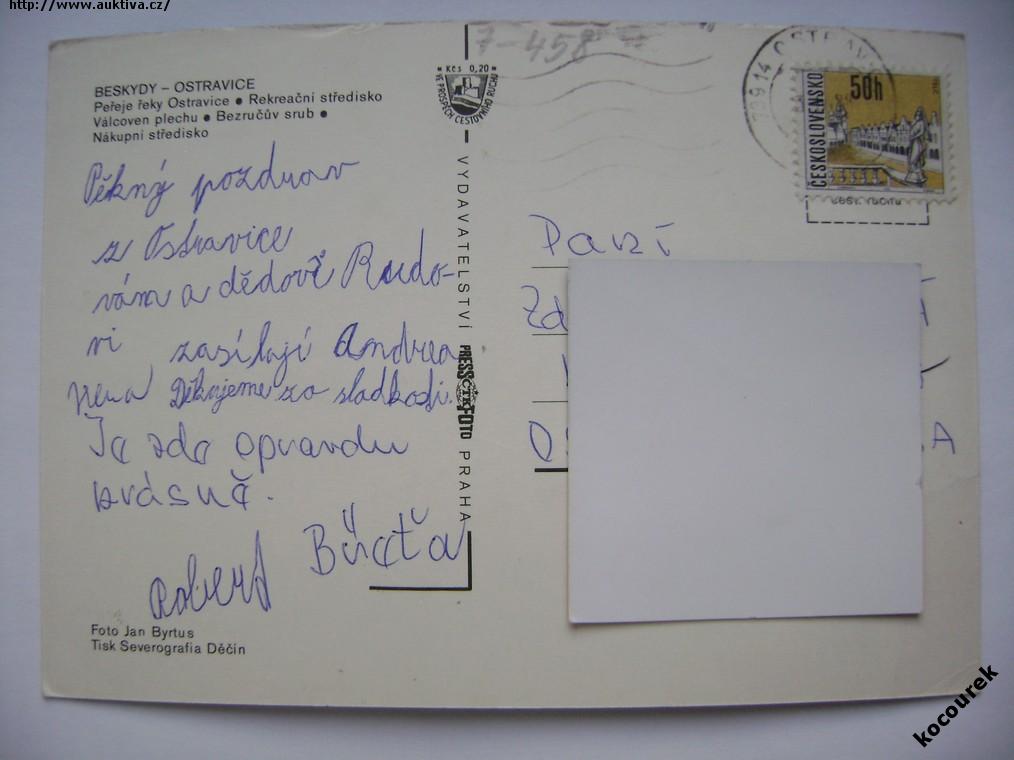 http://www.auktiva.cz/
BESKYDY – OSTRAVICE
Peřeje řeky Ostravice ● Rekreační středisko
Válcoven plechu ● Bezručův srub ●
Nákupní středisko
Pěkný pozdrav
z Ostravice
vám a dědovi Rudo-
vi zasílají Andrea
Děkujeme za sladkosti.
Je zde opravdu
krásně.
Robert
Foto Jan Byrtus
Tisk Severografia Děčín
7-458
Kčs 0,20
VE PROSPĚCH CESTOVNÍHO RUCHU
VYDAVATELSTVÍ PRESSFOTO PRAHA
ČTK
739 14 OSTRAV
50h
ČESKOSLOVENSKO
Paní
Zd
A
kocourek